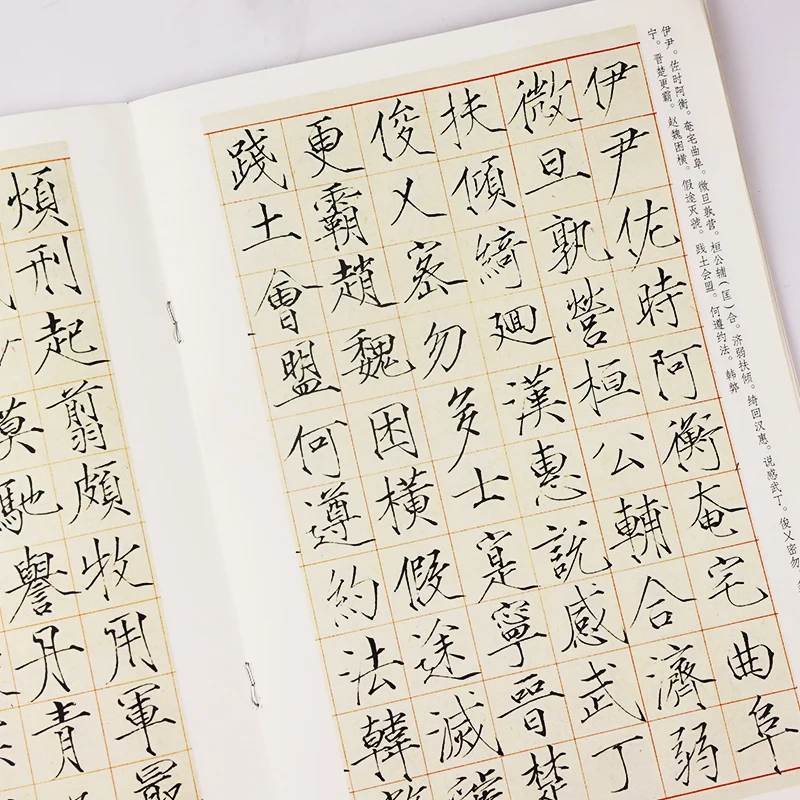 伊尹。佐时阿衡。奄宅曲阜。微旦孰营。桓公辅（匡）合。济弱扶倾。绮回汉惠。说感武丁。俊乂密勿
宁。晋楚更霸。赵魏困横。假途灭虢。践土会盟。何遵约法。韩弊
伊尹佐時阿衡奄宅曲阜
微旦孰營桓公輔合濟弱
扶傾綺迴漢惠說感武丁
俊乂密勿多士寔寧晉楚
更霸趙魏困橫假途滅
踐土會盟何遵約法韓
煩刑起翦頗牧用軍最
漠馳譽丹青